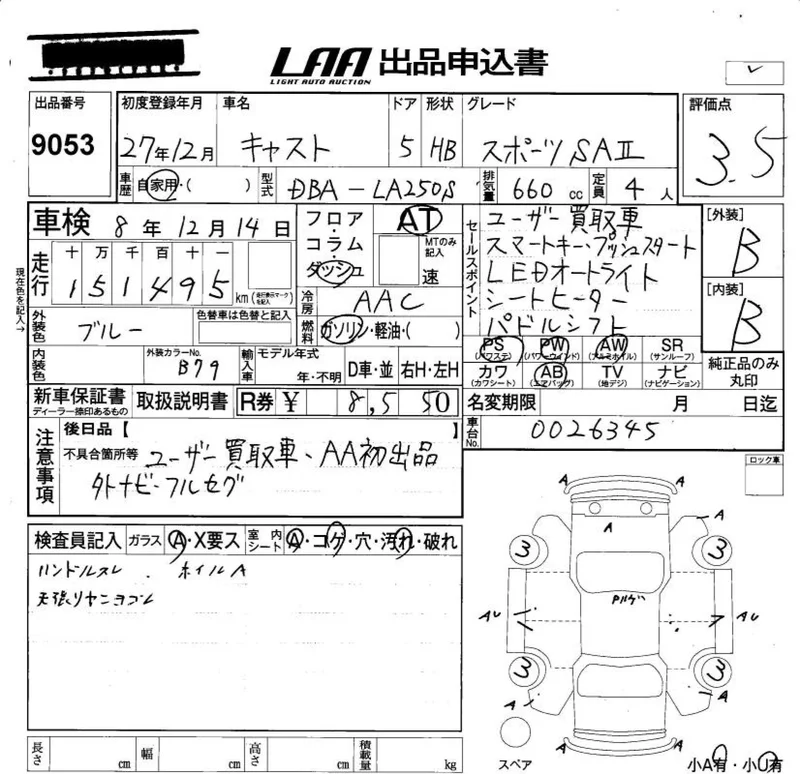 LAA 出品申込書
LIGHT AUTO AUCTION
出品番号 初度登録年月 車名 ドア 形状 グレード 評価点
9053 27年12月 キャスト 5 HB スポーツSAⅡ 3.5
車歴 自家用・( ) 型式 DBA-LA250S 排気量 660 cc 定員 4 人
車検 8年 12月 14日 フロア・コラム・ダッシュ AT MTのみ記入 速
走行 十 万 千 百 十 一
1 5 1 4 9 5 km (走行表示マークを記入)
現在色を記入→
冷房 AAC
外装色 ブルー 色替車は色替と記入 燃料 ガソリン・軽油・( )
内装色 外装カラーNo. B79 輸入車 モデル年式 年・不明 D車・並 右H・左H
新車保証書 ディーラー捺印あるもの 取扱説明書 R券 ¥ 8,550
セールスポイント
ユーザー買取車
スマートキー・プッシュスタート
LEDオートライト
シートヒーター
パドルシフト
[外装] B
[内装] B
PS (パワステ) PW (パワーウインド) AW (アルミホイル) SR (サンルーフ)
カワ (カワシート) AB (エアバッグ) TV (地デジ) ナビ (ナビゲーション)
純正品のみ丸印
名変期限 月 日迄
車台No. 0026345
注意事項 後日品【 】
不具合箇所等 ユーザー買取車、AA初出品
外ナビ・フルセグ
ロック車
検査員記入 ガラス A・X要ス 室内シート A・コゲ・穴・汚れ・破れ
ハンドルスレ . ホイルA
天張りヤニヨゴレ
A A
A A
3 3
Pハゲ
AU AU
3 3
A A
A A
スペア
小A有・小U有
長さ cm 幅 cm 高さ cm 積載量 kg